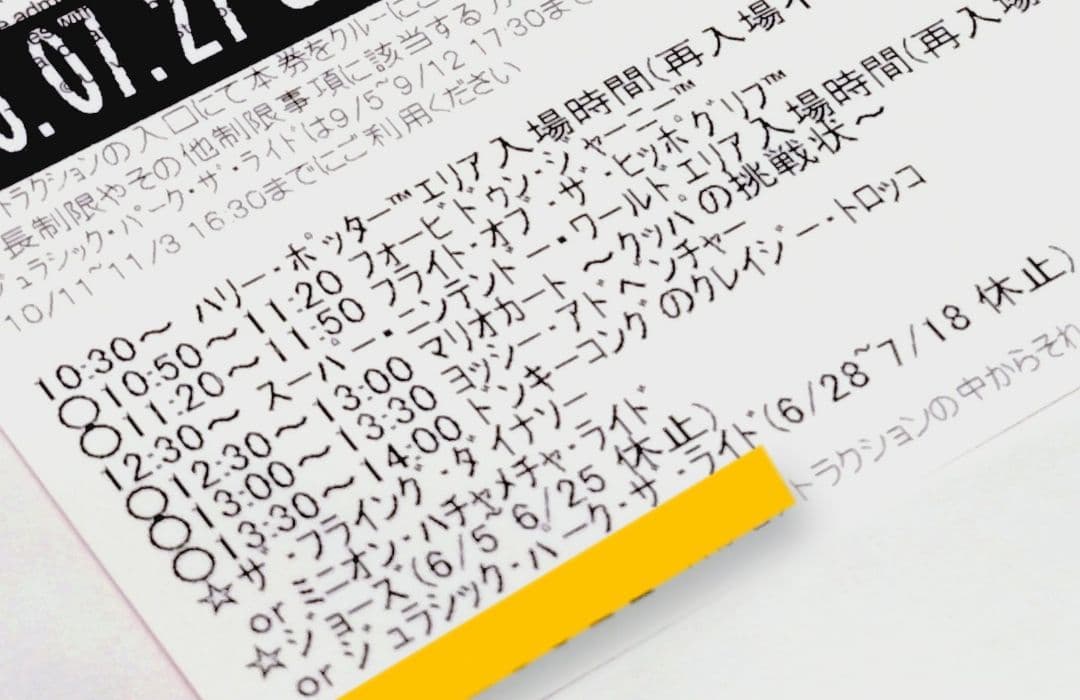 .01.2
トラクションの入口にて本券をクルーに
長制限やその他制限事項に該当する
ジュラシック・パーク・ザ・ライドは9/5~9/12 17:30まで
10/11~11/3 16:30までにご利用ください
10:30～ ハリー・ポッター™エリア入場時間(再入場不
〇10:50～11:20 フォービドゥン・ジャーニー™
〇11:20～11:50 フライト・オブ・ザ・ヒッポグリフ™
12:30～ スーパー・ニンテンドー・ワールドエリア入場時間(再入場
〇12:30～13:00 マリオカート ～クッパの挑戦状～
〇13:00～13:30 ヨッシー・アドベンチャー
〇13:30～14:00 ドンキーコングのクレイジー・トロッコ
☆ザ・フライング・ダイナソー
or ミニオン・ハチャメチャ・ライド
☆ジョーズ(6/5~6/25 休止)
or ジュラシック・パーク・ザ・ライド(6/28~7/18 休止)
トラクションの中からそれ